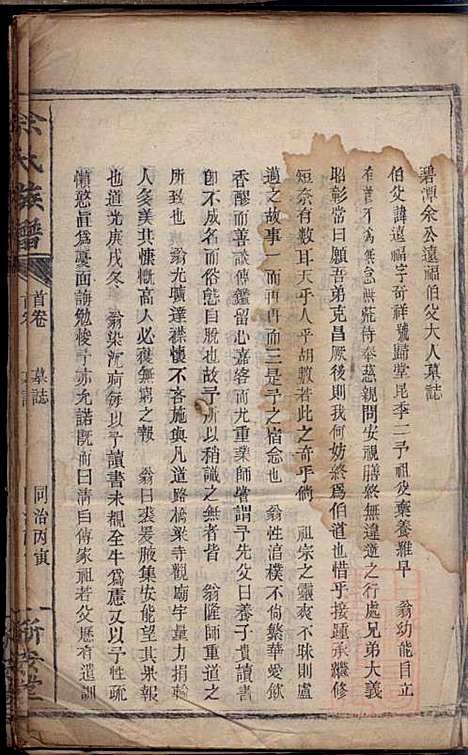 碧潭余公遠福伯父大人墓誌
伯父諱遠福字奇祥號歸堂昆季二予祖父棄養維早 翁幼能自立
有為無怠無荒侍奉慈親問安視膳終無違之行處兄弟大義
昭彰嘗曰願吾弟克昌厥後則我何妨終為伯道也惜乎接踵承繼修
短奈有數耳天乎人乎胡數若此之奇乎倘 祖宗之靈爽不昧則盧
邁之故事一而再再而三是予之宿念也 翁性渾樸不尚繁華愛飲
香醪而善談傳鑑留心嘉客而尤重業師嘗謂予先父曰養子貴讀書
卽不成名而氣度超脫也可以稍識之無者皆 翁隆師重道之
效也 翁尤曠達襟懷不吝施與凡道路橋梁寺觀廟宇量力捐輸
人多美其慷慨高人必獲無窮之報 翁曰裘爰腋集安能望其果報
也道光庚戌冬 翁染沉疴每以予讀書未覩全牛為慮又以予性疏
懶憨眞為憂面誨勉悛予亦允諾既而曰清白傳家祖若父歷有遺訓
余氏族譜
首卷
墓誌
同治丙寅
新安堂